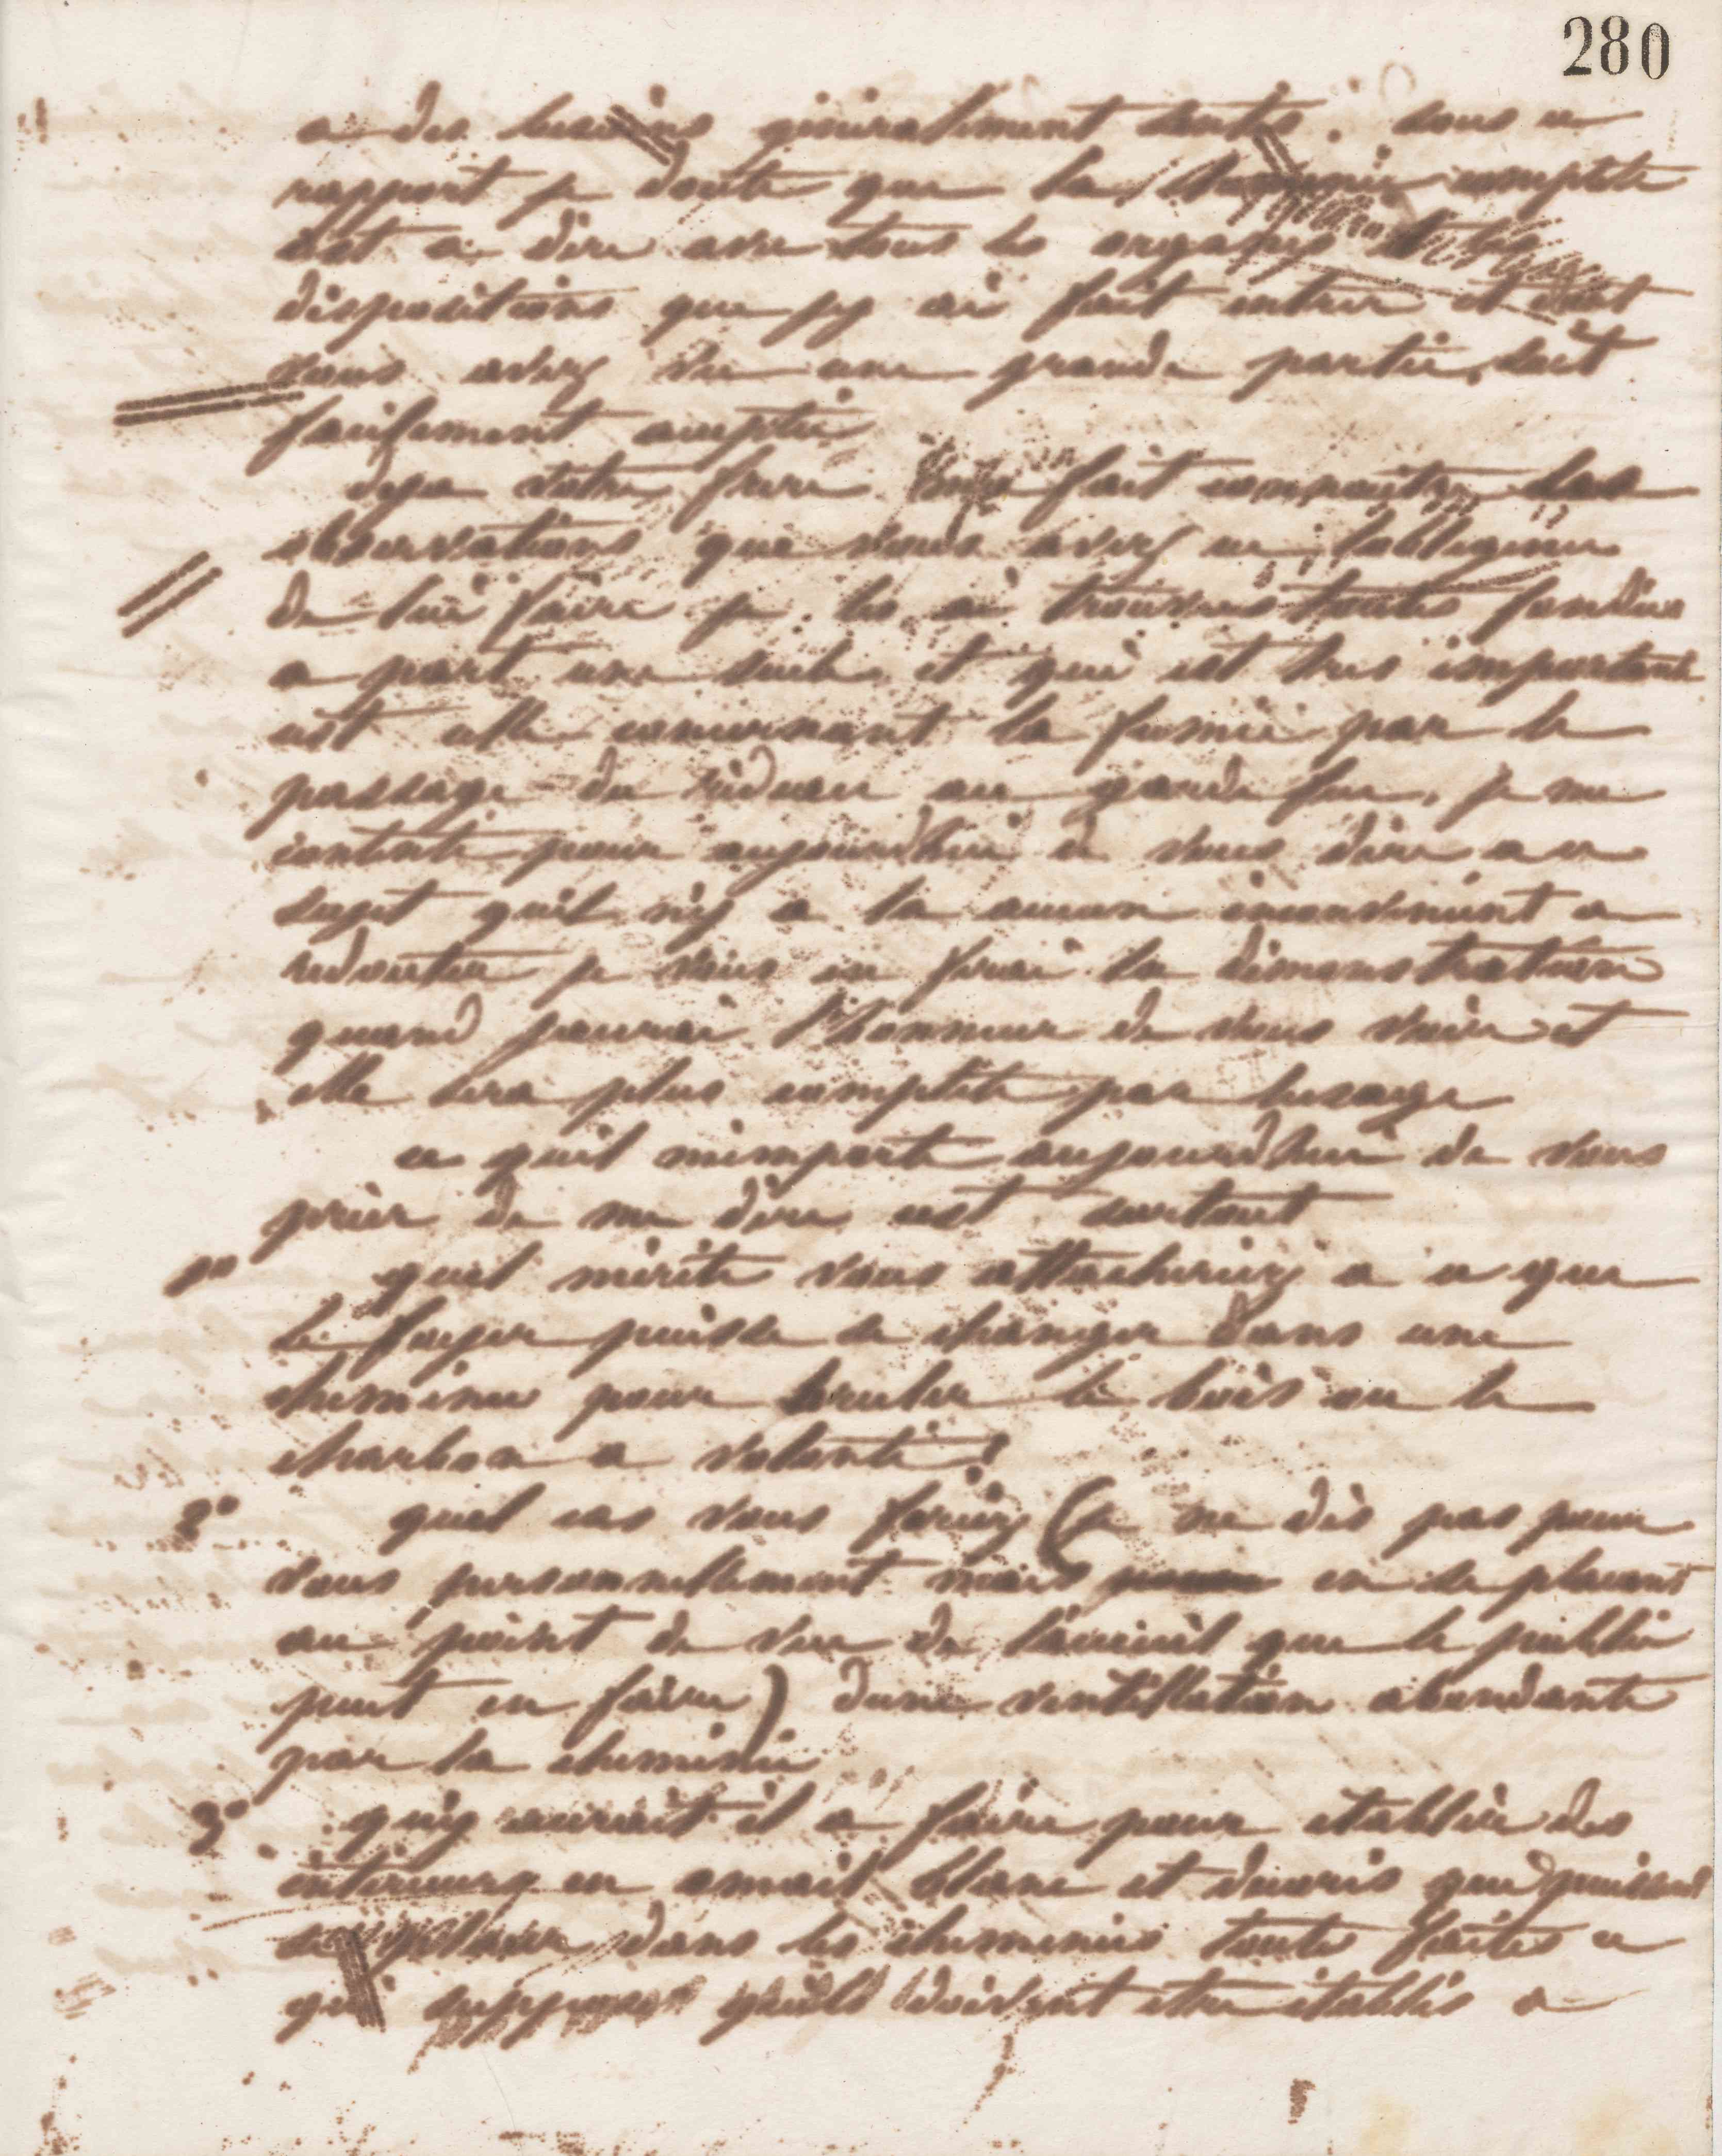 280
a des besoins généralement sentis. sous ce
rapport je doute que la cheminée complete
cest a dire avec tous les organes et les
dispositions que j'y ai fait entrer et dont
vous avez vu une grande partie, soit
facilement acceptée
deja votre frere m'a fait connaitre les
observations que vous avez eu l'obligence
de lui faire je les ai trouvées toutes fondées
a part une seule et qui est tres importante
cest celle concernant la fumée par le
passage du rideau au garde feu, je me
contente pour aujourdhui de vous dire a ce
sujet quil n'y a la aucun inconvenient a
redouter je vous en ferai la démonstration
quand jaurai l'honneur de vous voir et
elle sera plus complete par lusage
ce quil mimporte aujourdhui de vous
prier de me dire cest surtout
1º quel mérite vous attacheriez a ce que
le foyer puisse se changer dans une
cheminée pour bruler le bois ou le
charbon a volonté
2º quel cas vous feriez (je ne dis pas pour
vous personnellement mais en se placant
au point de vue de l'acceuil que le public
peut en faire) dune ventillation abondante
par la cheminée
3º qu'y aurait il a faire pour etablir des
interieurs en émail blanc et decorés qui puissent
se placer dans les cheminées toutes faites ce
qui suppose quils doivent etre établis a